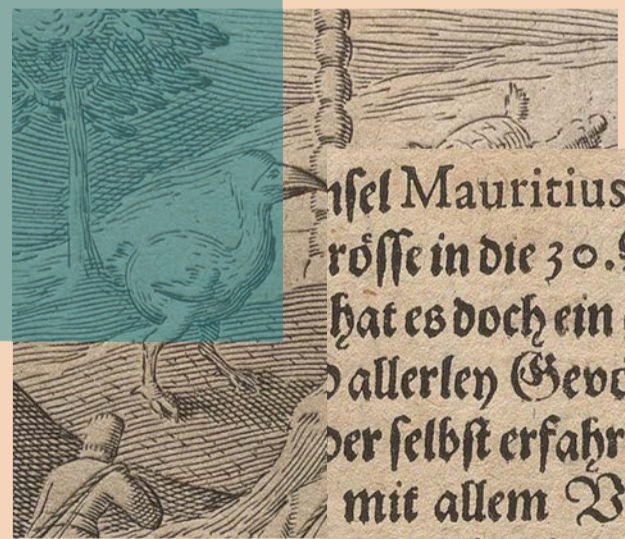 nſel Mauritius
röſſe in die 30.
hat es doch ein
allerley Gevö
der ſelbſt erfahr
mit allem